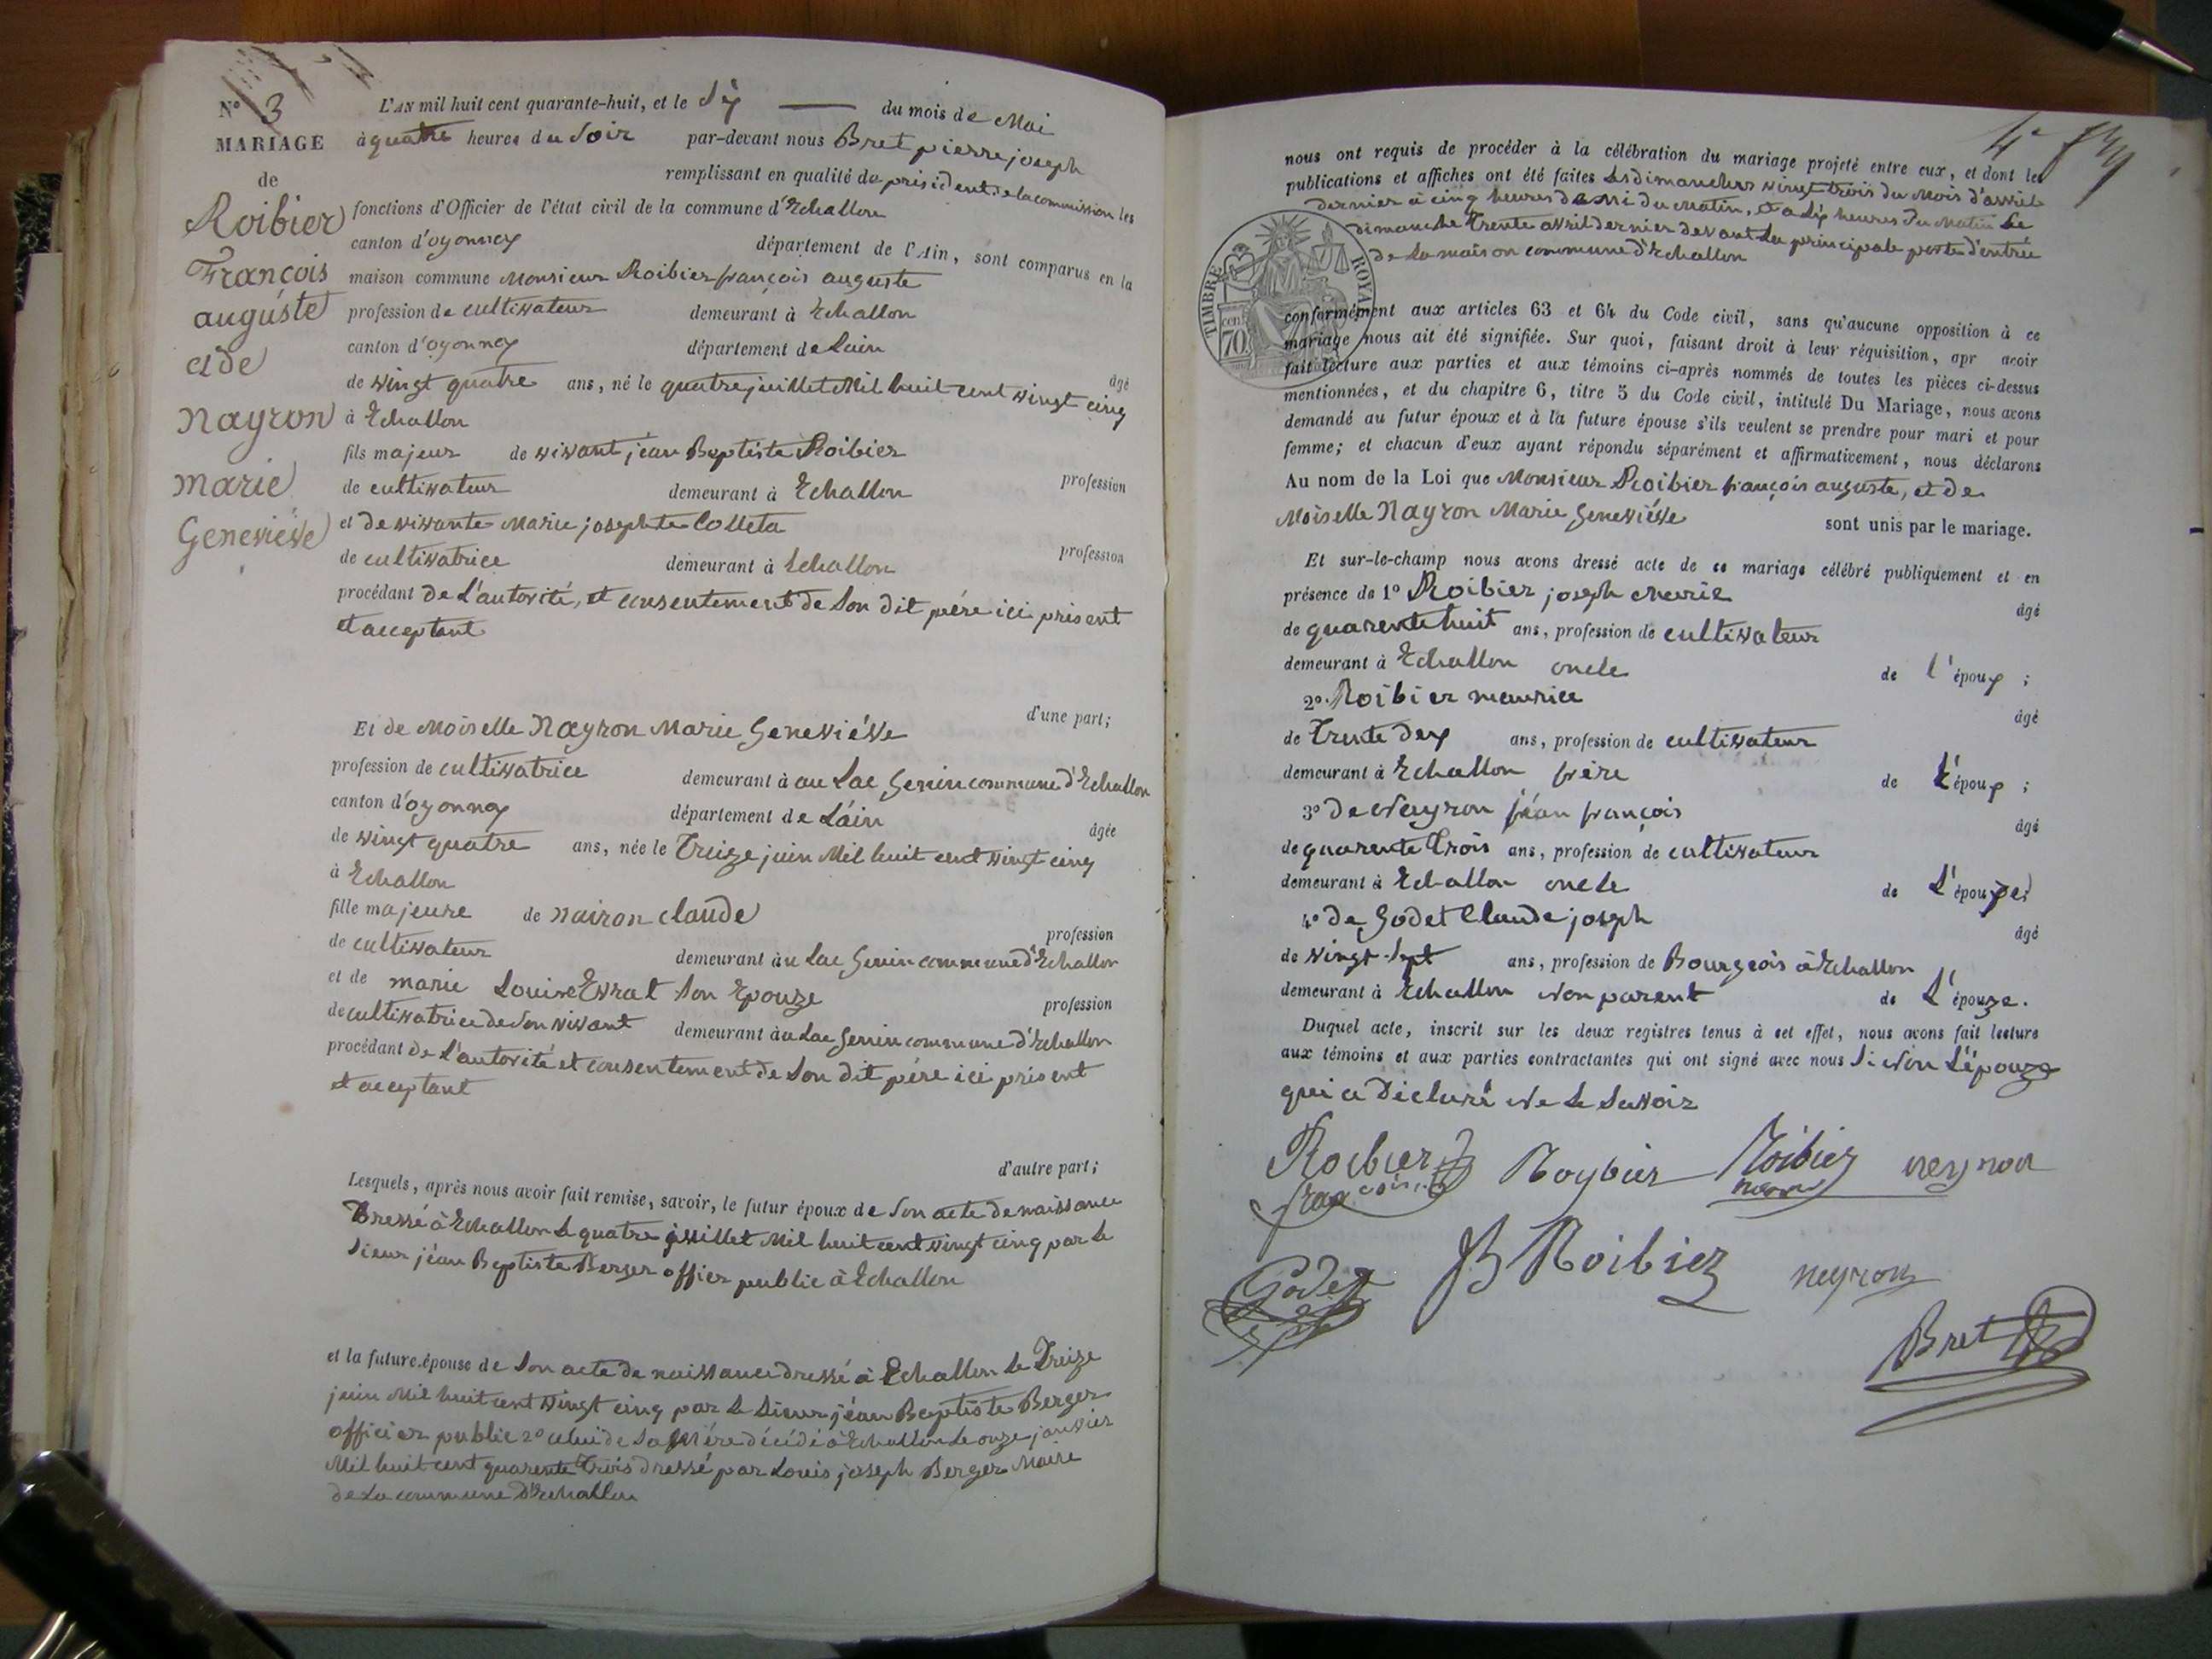 N° 3
MARIAGE
de
Roibier
François
auguste
et de
Nayron
marie
Geneviéve
L'AN mil huit cent quarante-huit, et le Six du mois de Mai
à quatre heures du Soir par-devant nous Bret pierre joseph
remplissant en qualité de président de la commission les
fonctions d'Officier de l'état civil de la commune d'Echallon
canton d'oyonnax département de l'Ain, sont comparus en la
maison commune Monsieur Roibier françois auguste
profession de cultivateur demeurant à Echallon
canton d'oyonnax département de Lain
âgé
de vingt quatre ans, né le quatre juillet Mil huit cent vingt cinq
à Echallon
fils majeur de vivant jéan Baptiste Roibier
profession
de cultivateur demeurant à Echallon
et de vivante Marie josephte Colleta
profession
de cultivatrice demeurant à Echallon
procédant de L'autorité, et consentement de Son dit pére ici présent
et acceptant
d'une part;
Et de Moiselle Nayron Marie Geneviéve
profession de cultivatrice demeurant à au Lac Genin commune d'Echallon
canton d'oyonnax département de L'ain
âgée
de vingt quatre ans, née le Treize juin Mil huit cent vingt cinq
à Echallon
fille majeure de nairon claude
profession
de cultivateur demeurant àu Lac Genin commune d'Echallon
et de marie Louise Evrat Son Epouze
profession
de cultivatrice de Son vivant demeurant àu Lac Genin commune d'Echallon
procédant de L'autorité et consentement de Son dit pére ici présent
et acceptant
d'autre part;
Lesquels, après nous avoir fait remise, savoir, le futur époux de Son acte de naissance
Dressé à Echallon Le quatre juillet Mil huit cent vingt cinq par Le
Sieur jéan Baptiste Berger offier public à Echallon
et la future épouse de Son acte de naissance dressé à Echallon Le Treize
juin Mil huit cent vingt cinq par Le Sieur jéan Baptiste Berger
officier public 2° celui de Sa Mére décédé à Echallon Le onze janvier
Mil huit cent quarente Trois dressé par Louis joseph Berger Maire
de La commune d'Echallon
nous ont requis de procéder à la célébration du mariage projeté entre eux, et dont les
publications et affiches ont été faites Les dimanches vingt trois du Mois d'avril
dernier à cinq heures demi du Matin, et a Six heures du Matin Le
dimanche Trente avril dernier devant La principale porte d'entrée
de La maison commune d'Echallon
TIMBRE ROYAL
cent.
70
conformément aux articles 63 et 64 du Code civil, sans qu'aucune opposition à ce
mariage nous ait été signifiée. Sur quoi, faisant droit à leur réquisition, apr avoir
fait lecture aux parties et aux témoins ci-après nommés de toutes les pièces ci-dessus
mentionnées, et du chapitre 6, titre 5 du Code civil, intitulé Du Mariage, nous avons
demandé au futur époux et à la future épouse s'ils veulent se prendre pour mari et pour
femme; et chacun d'eux ayant répondu séparément et affirmativement, nous déclarons
Au nom de la Loi que Monsieur Roibier françois auguste, et de
Moiselle Nayron Marie Geneviéve sont unis par le mariage.
Et sur-le-champ nous avons dressé acte de ce mariage célébré publiquement et en
présence de 1° Roibier joseph Marie
âgé
de quarente huit ans, profession de cultivateur
demeurant à Echallon oncle de l'époux;
2° Roibier maurice
âgé
de Trente Deux ans, profession de cultivateur
demeurant à Echallon frère de L'époux;
3° de Nayron jéan françois
âgé
de quarente Trois ans, profession de cultivateur
demeurant à Echallon oncle de L'épouze
4° de Godet Claude joseph
âgé
de vingt-Sept ans, profession de Bourgeois à Echallon
demeurant à Echallon Non parent de L'épouze.
Duquel acte, inscrit sur les deux registres tenus à cet effet, nous avons fait lecture
aux témoins et aux parties contractantes qui ont signé avec nous Si Non L'épouze
qui a Déclaré Ne Le Savoir
Roibier Roybier Roibier neyron
JB Roibier neyron
Godet
Bret